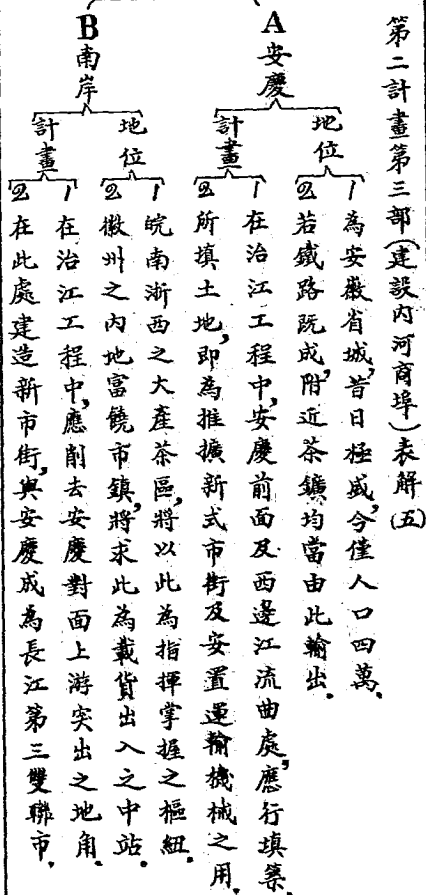 第二計畫第三部(建設內河商埠)表解(五)
A安慶
地位
1為安徽省城,昔日極盛,今僅人口四萬.
2若鐵路既成,附近茶鑛均當由此輸出.
計畫
1在治江工程中,安慶前面及西邊江流曲處,應行填築.
2所填土地,即為推擴新式市街及安置運輸機械之用.
B南岸
地位
1皖南浙西之大產茶區,將以此為指揮掌握之樞紐.
2徽州之內地富饒市鎮,將求此為載貨出入之中站.
計畫
1在治江工程中,應削去安慶對面上游突出之地角.
2在此處建造新市街,與安慶成為長江第三雙聯市.